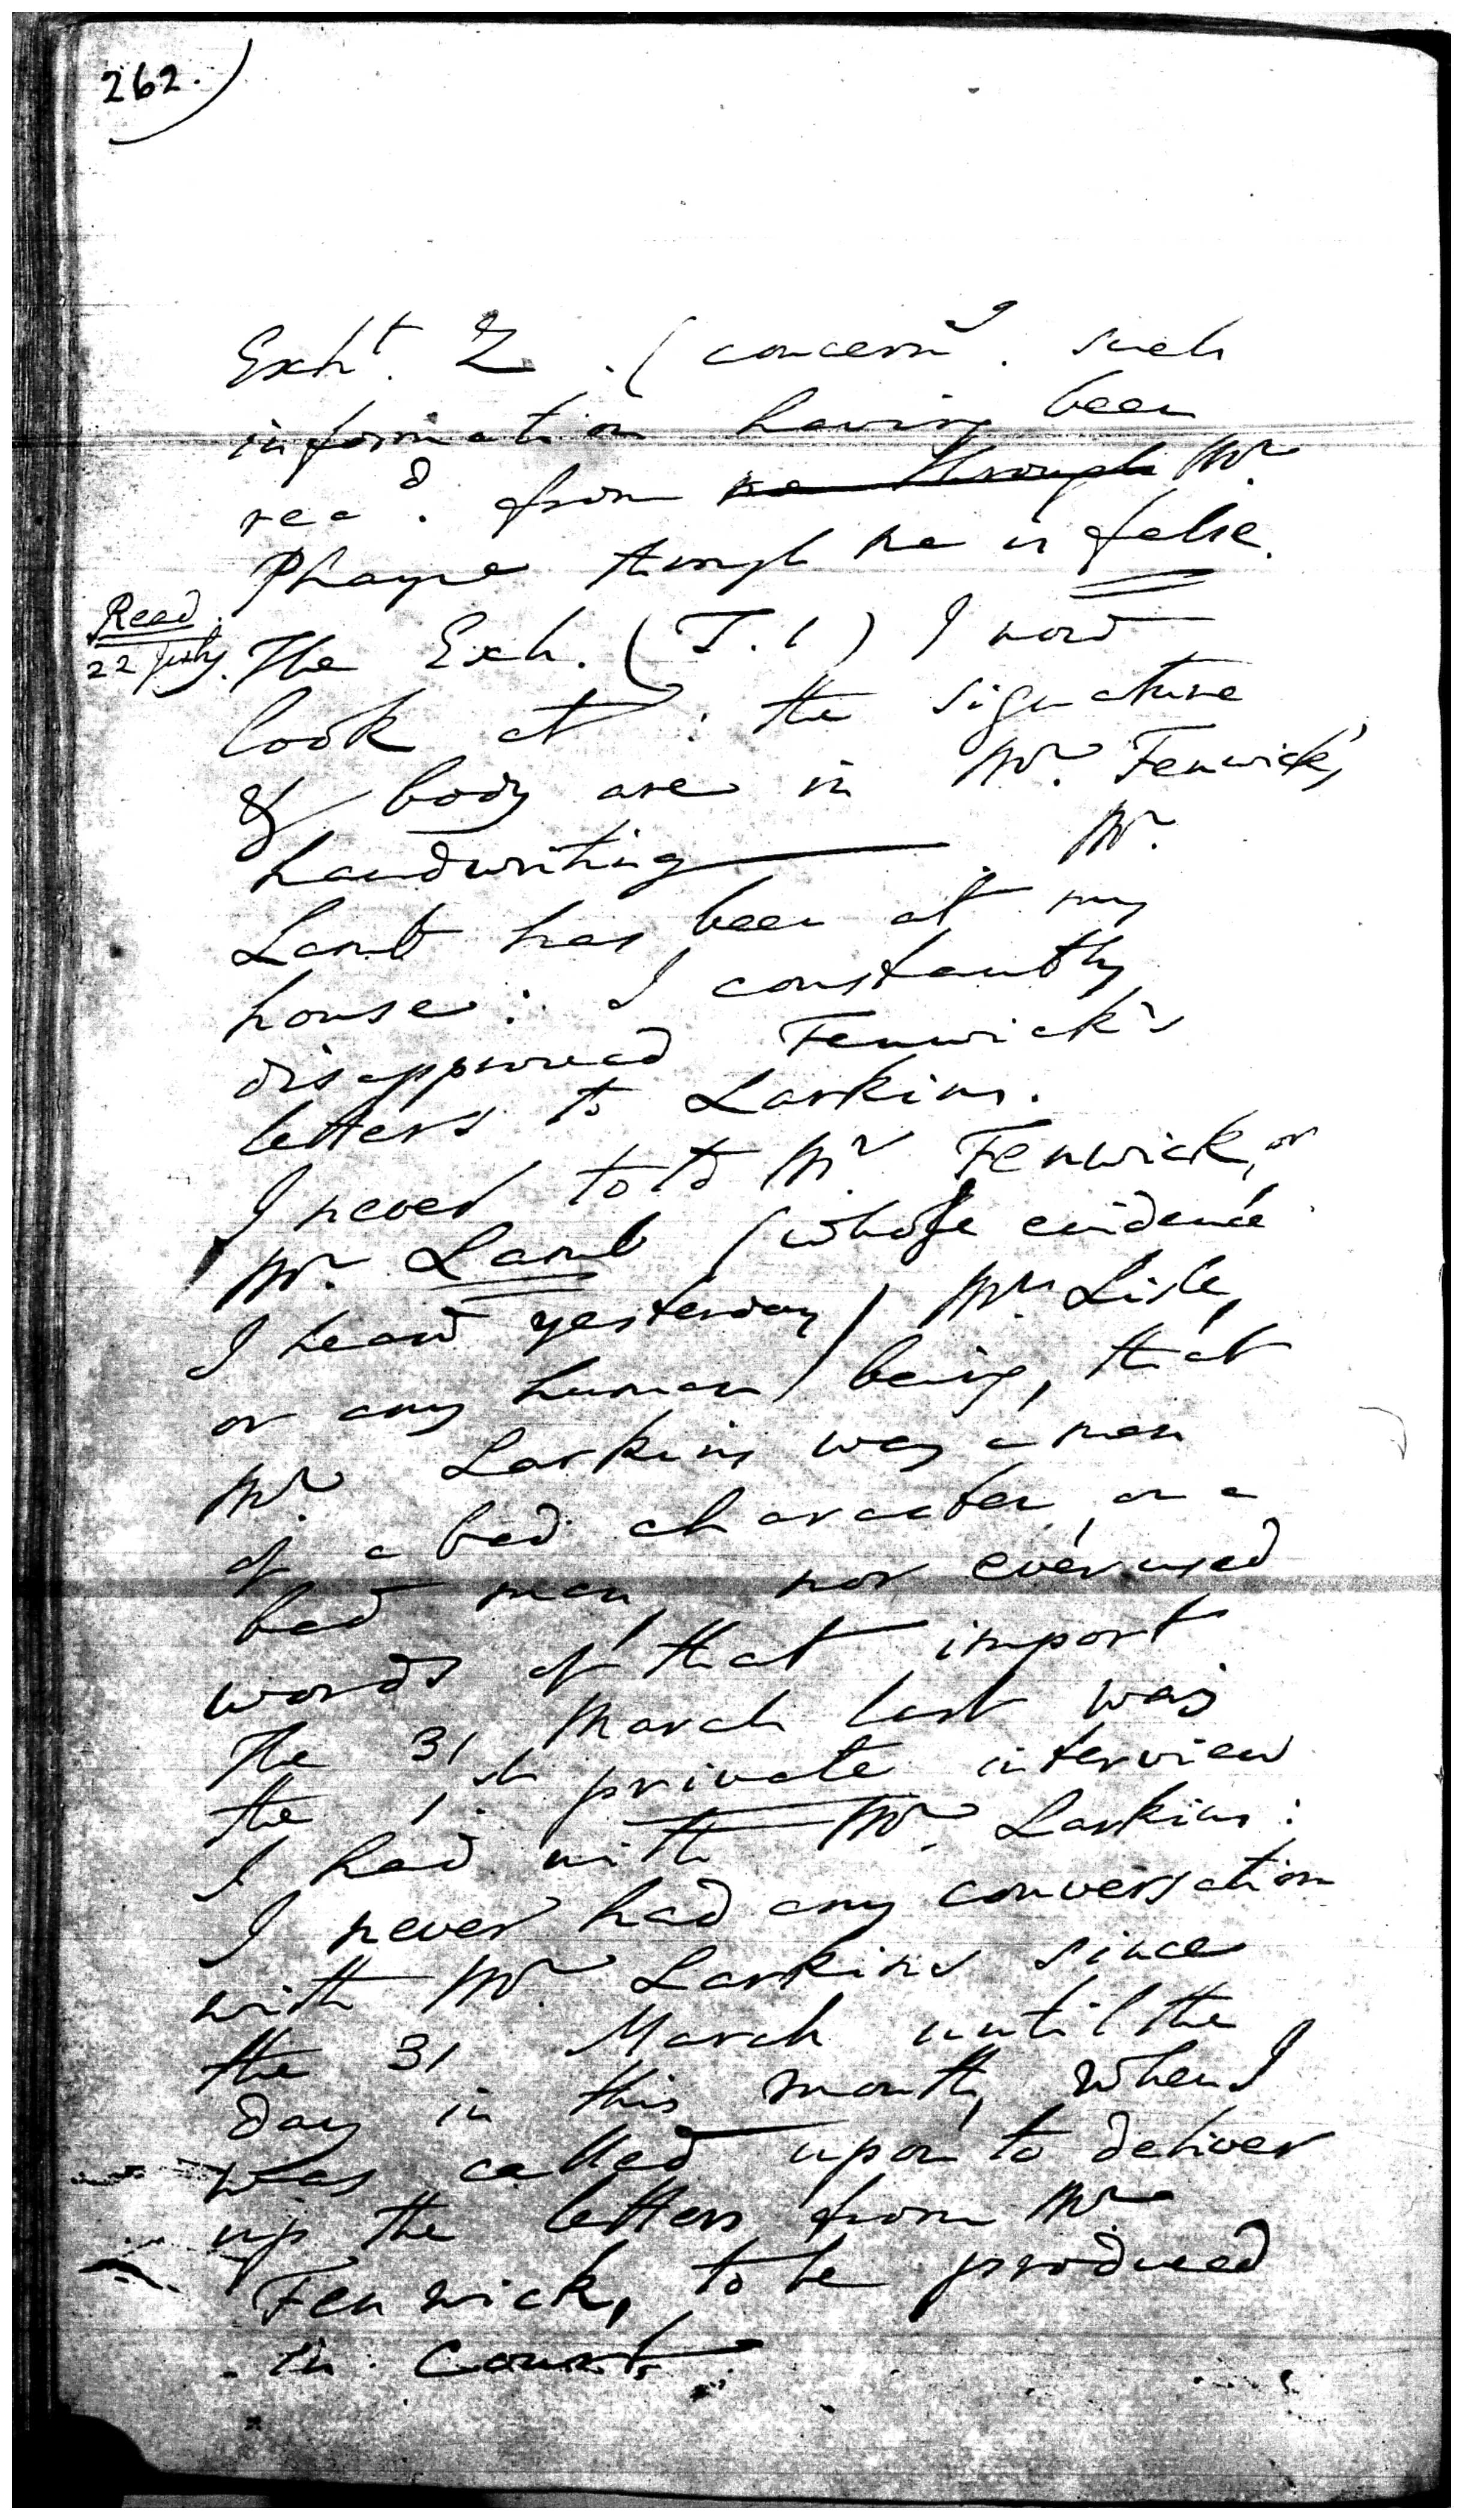 262.)
Exht. Z. (concerng. such
information having been
recd. from me through Mr.
Phayre through me is false.
Read
22 July.
The Exh. (T.1) I now
look at: the signature
& body are in Mr. Fenwick's
handwriting — Mr.
Lamb has been at my
house: I constantly
disapproved Fenwick's
letters to Larkins.
I never told Mr. Fenwick, or
Mr. Lamb (whose evidence
I heard yesterday) Mrs Lisle,
or any human being, that
Mr. Larkins was a man
of a bad character, or a
bad man, nor ever used
words of that import
The 31 March last was
the 1st. private interview
I had with Mr. Larkins:
I never had any conversation
with Mr. Larkins since
the 31 March until the
day in this month, when I
was called upon to deliver
up the letters from Mr.
Fenwick, to be produced
in Court.